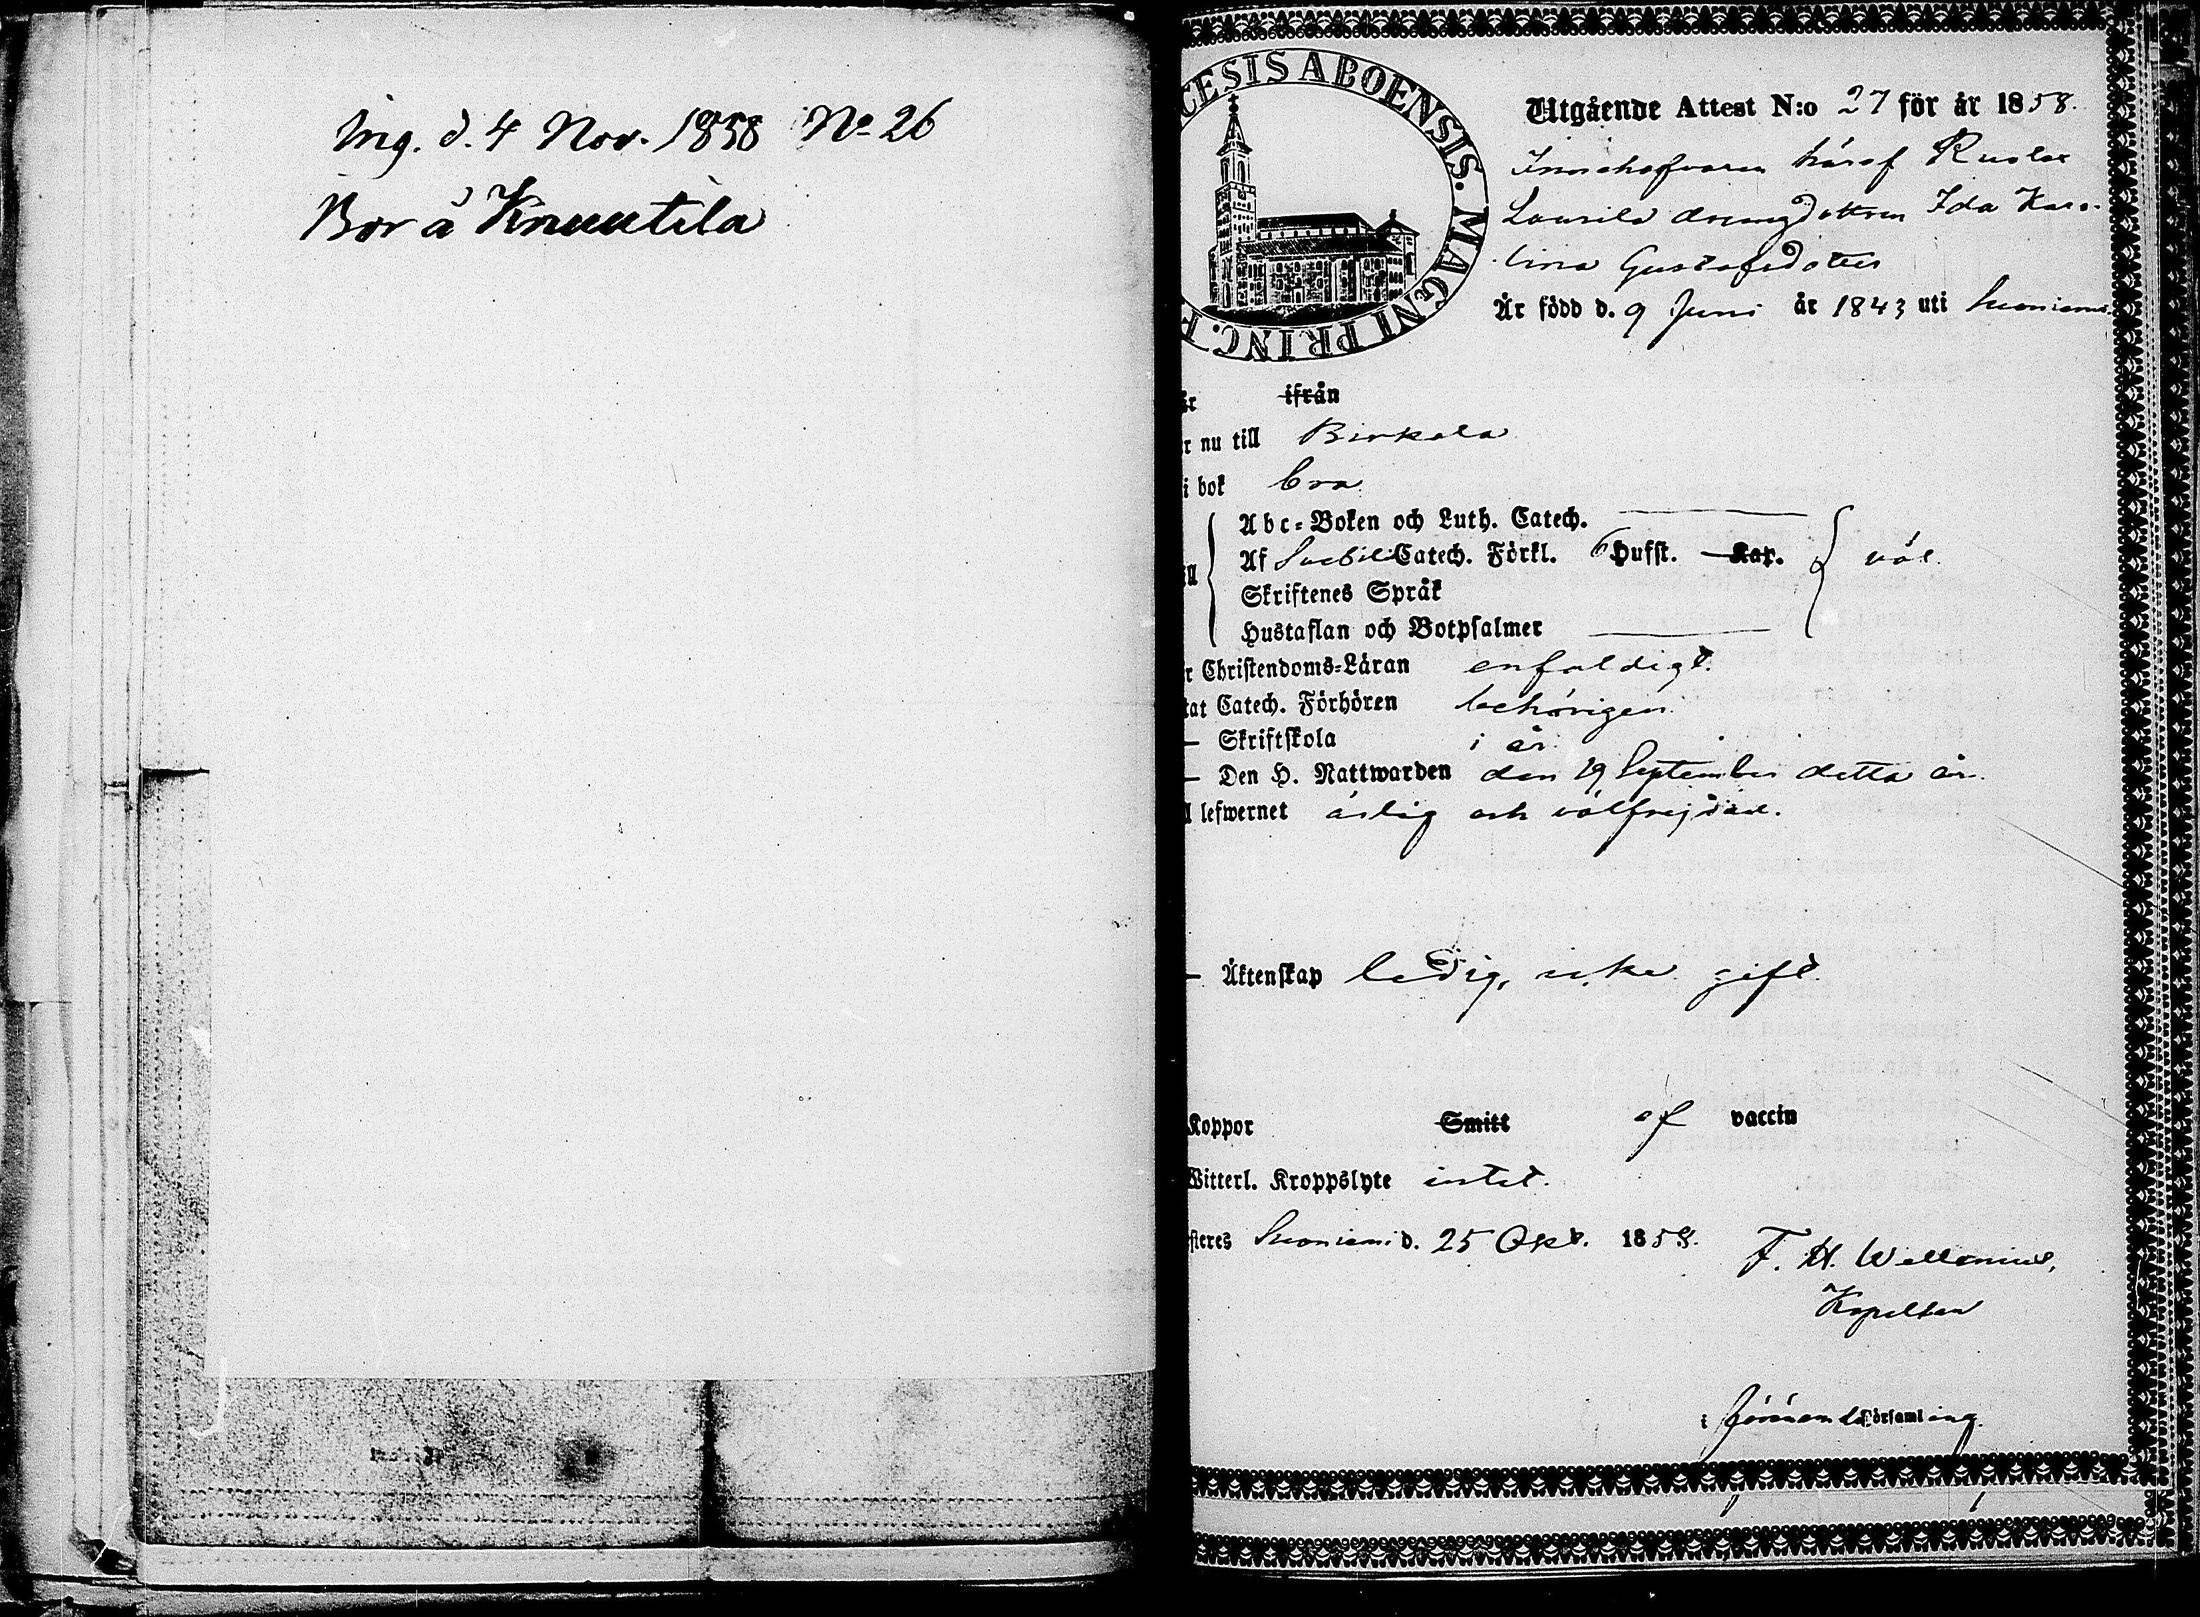 Ing. d. 4 Nov. 1858 No 26
Bor å Knuutila
CESIS ABOENSIS. MAGNI PRINC. F
Utgående Attest N:o 27 för år 1858.
Innehafvaren häraf
Laurila drengdottren Ida Karo-
lina Gustafsdotter
Är född d. 9 Juni år 1843 uti Suoniemi
är ifrån
r nu till Birkala
i bok bra
Abc-Boken och Luth. Catech.
Af Svebilii Catech. Förkl. 6 Hufst. Kap. väl.
ll
Skriftenes Språk
Hustaflan och Botpsalmer
r Christendoms-Läran enfaldigt.
tat Catech. Förhören behörigen
— Skriftskola i år
— Den H. Nattwarden den 19 September detta år.
l lefwernet ärlig och välfrejdad.
— Äktenskap ledig, icke gift.
Koppor Smitt af vaccin
Witterl. Kroppslyte intet.
steres Suoniemi d. 25 Okt. 1858.
F. H. Wellenius,
Kapellan
i församling.